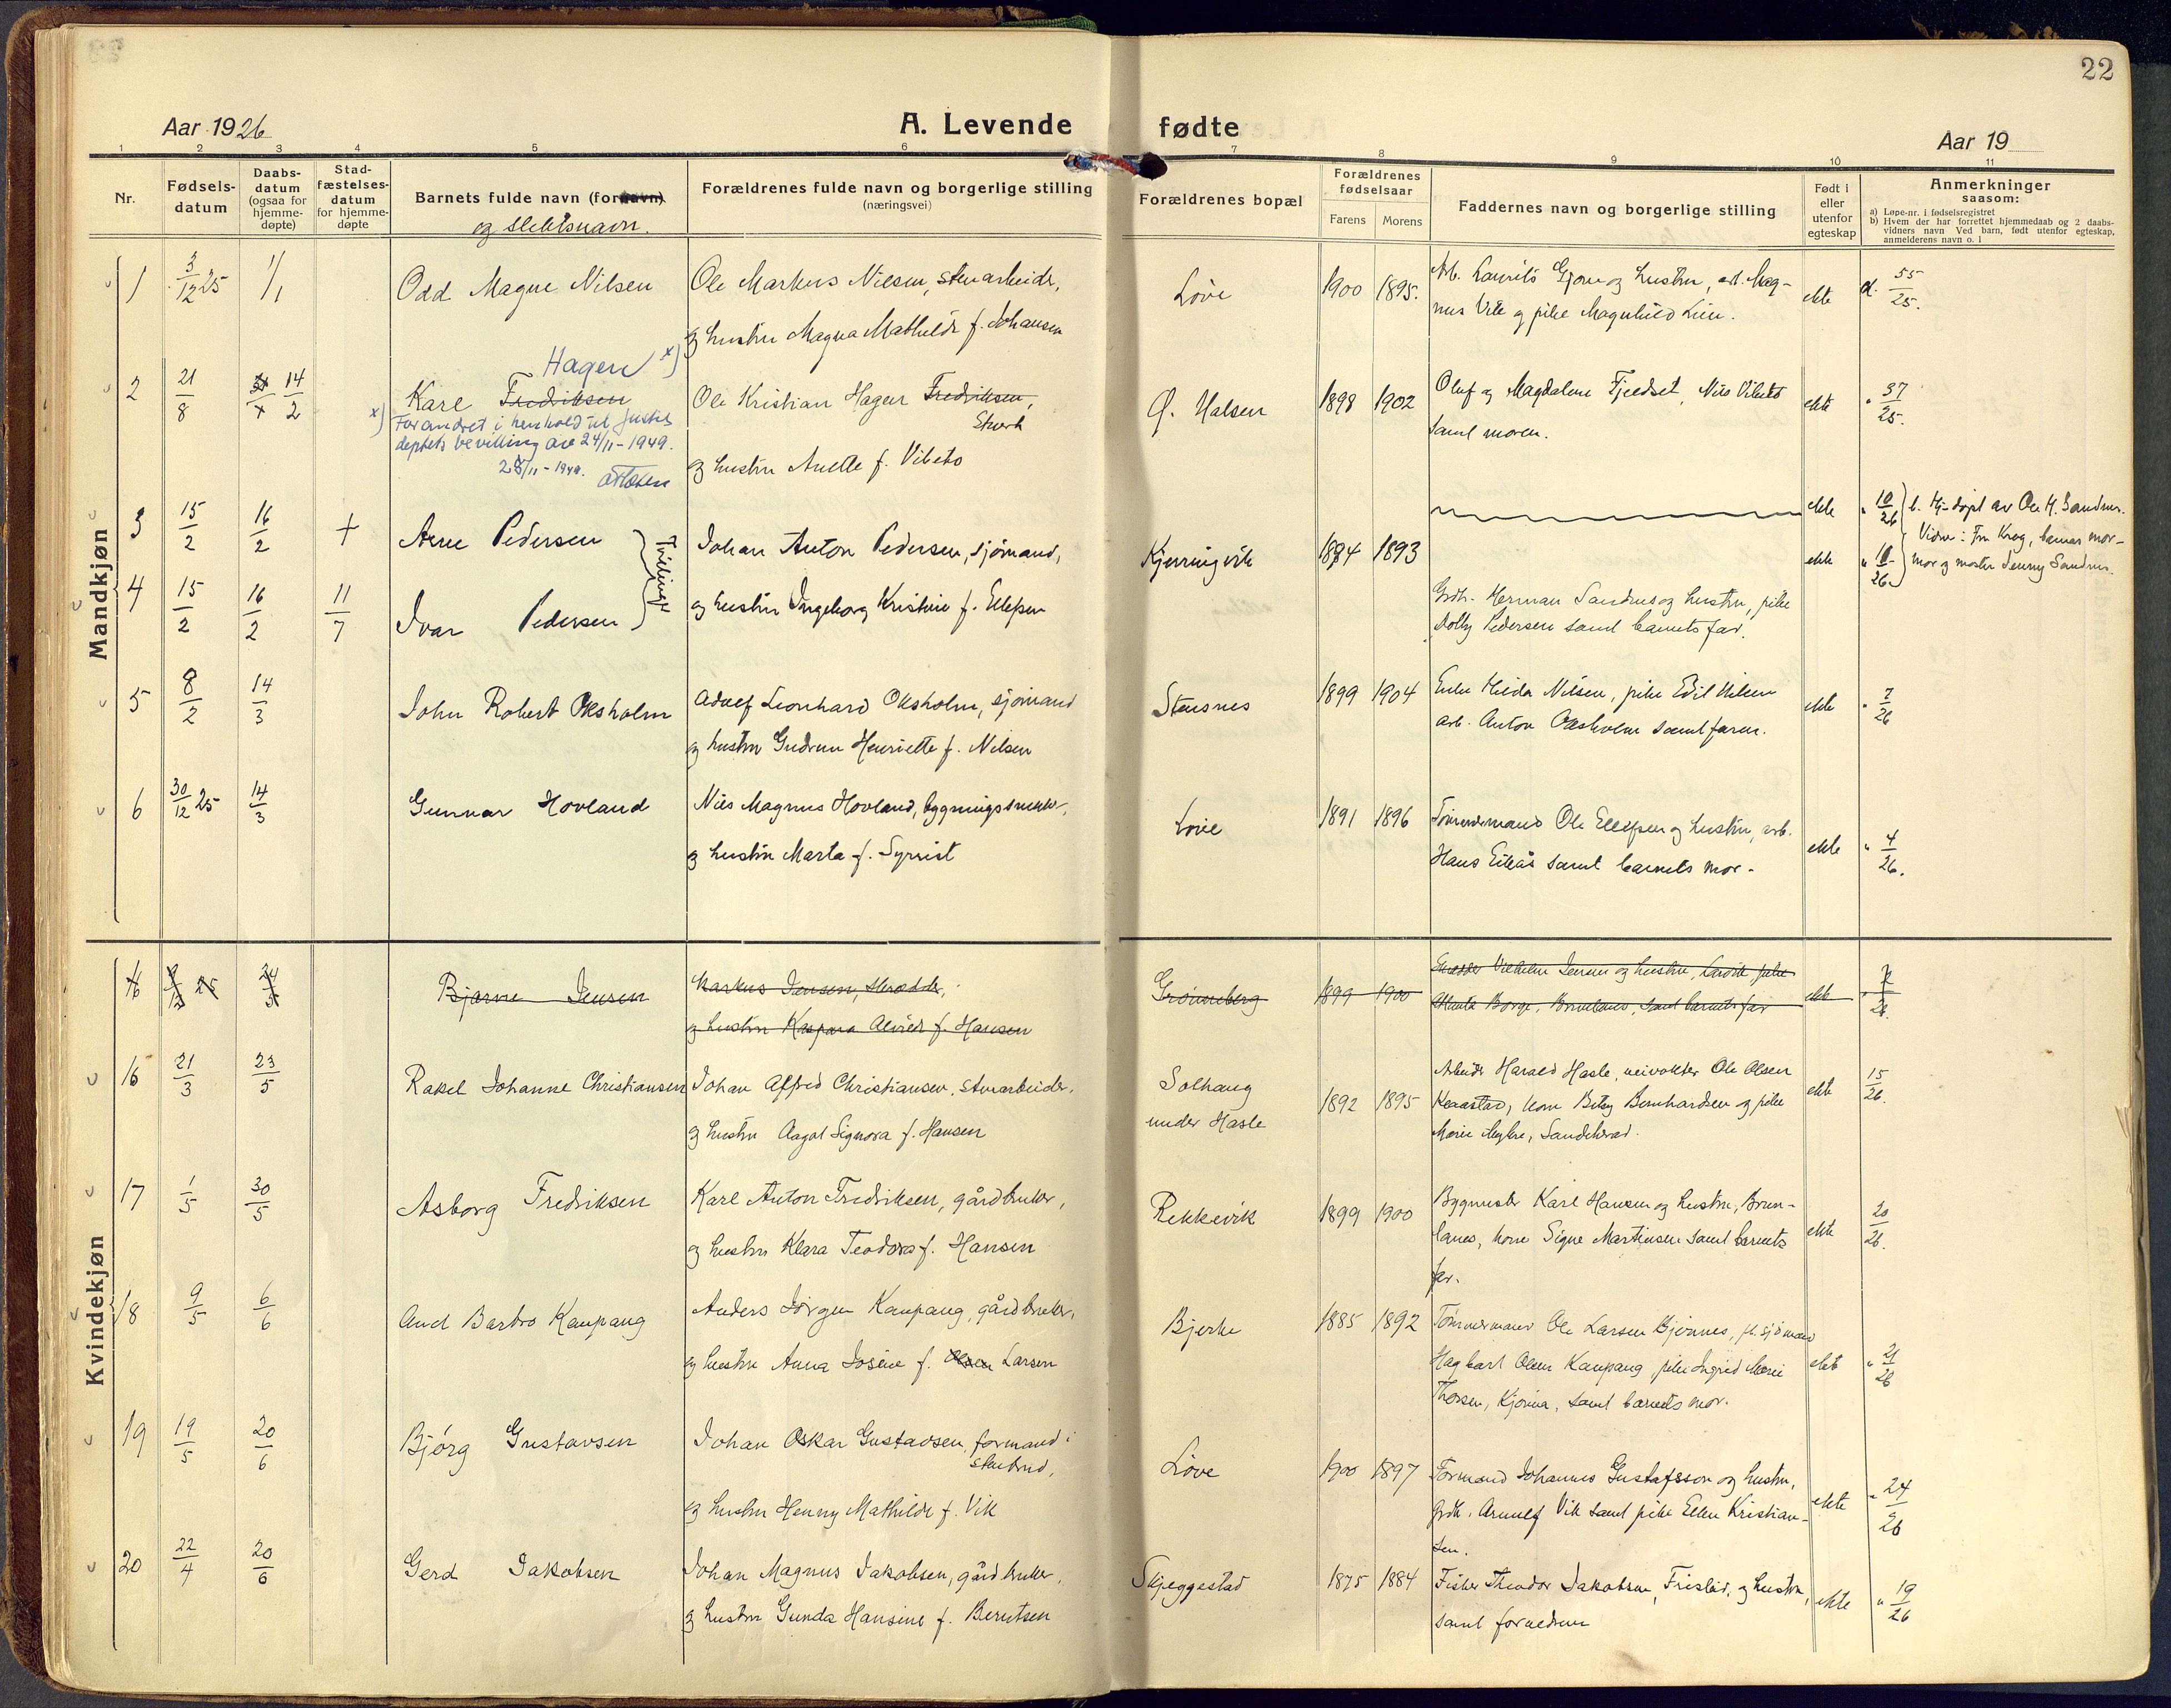 22
Aar 1926
A. Levende fødte
Aar 19
1 2 3 4 5 6 7 8 9 10 11
Nr.
Fødsels-
datum
Daabs-
datum
(ogsaa for
hjemme-
døpte)
Stad-
fæstelses-
datum
for hjemme-
døpte
Barnets fulde navn (fornavn)
og slektsnavn.
Forældrenes fulde navn og borgerlige stilling
(næringsvei)
Forældrenes bopæl
Forældrenes
fødselsaar
Farens Morens
Faddernes navn og borgerlige stilling
Født i
eller
utenfor
egteskap
Anmerkninger
saasom:
a) Løpe-nr. i fødselsregistret
b) Hvem der har forrettet hjemmedaab og 2 daabs-
vidners navn Ved barn, født utenfor egteskap,
anmelderens navn o. l
Mandkjøn
1 3/12 25 1/1 Odd Magne Nilsen
Ole Markus Nilsen, stenarbeider,
og hustru Magna Mathilde f. Johansen
Løve 1900 1895.
Arb. Laurits Gjone og hustru, arb. Mag-
nus Vile og pike Magnhild Lien.
ekte a. 55/25.
Hagen x)
2 21/8 14/2 Kare Fredriksen
x) Forandret i henhold til Justis
deptets bevilling av 24/11-1949.
28/11-1949.
Ole Kristian Hagen Fredriksen,
og hustru Anette f. Vibeto
Ø. Halsen 1898 1902
Oluf og Magdalene Fjeldset, Nils Vibeto
samt moren.
ekte " 37/25.
3 15/2 16/2 + Arne Pedersen
4 15/2 16/2 11/7 Ivar Pedersen
Tvillinger
Johan Anton Pedersen, sjømand,
og hustru Ingeborg Kristine f. Ellefsen
Kjerringvik 1884 1893
Grdb. Herman Sandnes og hustru, pike
Dolly Pedersen samt barnets far.
ekte " 10/26
ekte " 11/26
b. Hj-døpt av Ole H. Sandnes.
Vidner: Fru Krog, barnas mor-
mor og moster Jenny Sandnes.
5 8/2 14/3 John Robert Oksholm
Adolf Leonhard Oksholm, sjømand
og hustru Gudrun Henriette f. Nilsen
Stensnes 1899 1904
Enke Hilda Nilsen, pike Edil Nilsen
arb. Anton Oksholm samt faren.
ekte " 7/26
6 30/12 25 14/3 Gunnar Hovland
Nils Magnus Hovland, bygningssnekker,
og hustru Marta f. Syrrist
Løve 1891 1896
Tømmermand Ole Ellefsen og hustru, arb.
Hans Eikås samt barnets mor.
ekte " 4/26.
Kvindekjøn
Bjarne Jensen
Markus Jensen, skrædder,
og hustru Kaspara Alvilde f. Hansen
Grønneberg 1899 1900
Skrædder Vilhelm Jensen og hustru, Larvik, pike
Borge, Brunlanes, samt barnets far
ekte
16 21/3 23/5 Rakel Johanne Christiansen
Johan Alfred Christiansen, stenarbeider,
og hustru Aagot Signora f. Hansen
Solhaug
under Hasle
1892 1895
Arbeider Harald Hasle, veivokter Ole Olsen
Klaastad, kone Betsy Bernhardsen og pike
Marie Myhre, Sandeherad.
ekte 15/26.
17 1/5 30/5 Asborg Fredriksen
Karl Anton Fredriksen, gårdbruker,
og hustru Klara Teodora f. Hansen
Rekkevik 1899 1900
Bygmester Karl Hansen og hustru, Brun-
lanes, kone Signe Martinsen samt barnets
far.
ekte 20/26.
18 9/5 6/6 Aud Barbro Kaupang
Anders Jørgen Kaupang, gårdbruker,
og hustru Anna Josine f. Olsen Larsen
Bjerke 1885 1892
Tømmermand Ole Larsen Bjønnes, fh. sjømand
Hagbart Olsen Kaupang, pike Ingrid Marie
Thorsen, Kjønna, samt barnets mor.
ekte " 21/26
19 19/5 20/6 Bjørg Gustavsen
Johan Oskar Gustavsen, formand i
stenbrud,
og hustru Henny Mathilde f. Vik
Løve 1900 1897
Formand Johannes Gustafsson og hustru,
grdb. Arnulf Vik samt pike Ellen Kristian-
sen.
ekte " 24/26
20 22/4 20/6 Gerd Jakobsen
Johan Magnus Jakobsen, gårdbruker,
og hustru Gunda Hansine f. Berntsen
Skjeggestad 1875 1884
Fisker Theodor Jakobsen, Fristad, og hustru,
samt forældrene
ekte " 19/26